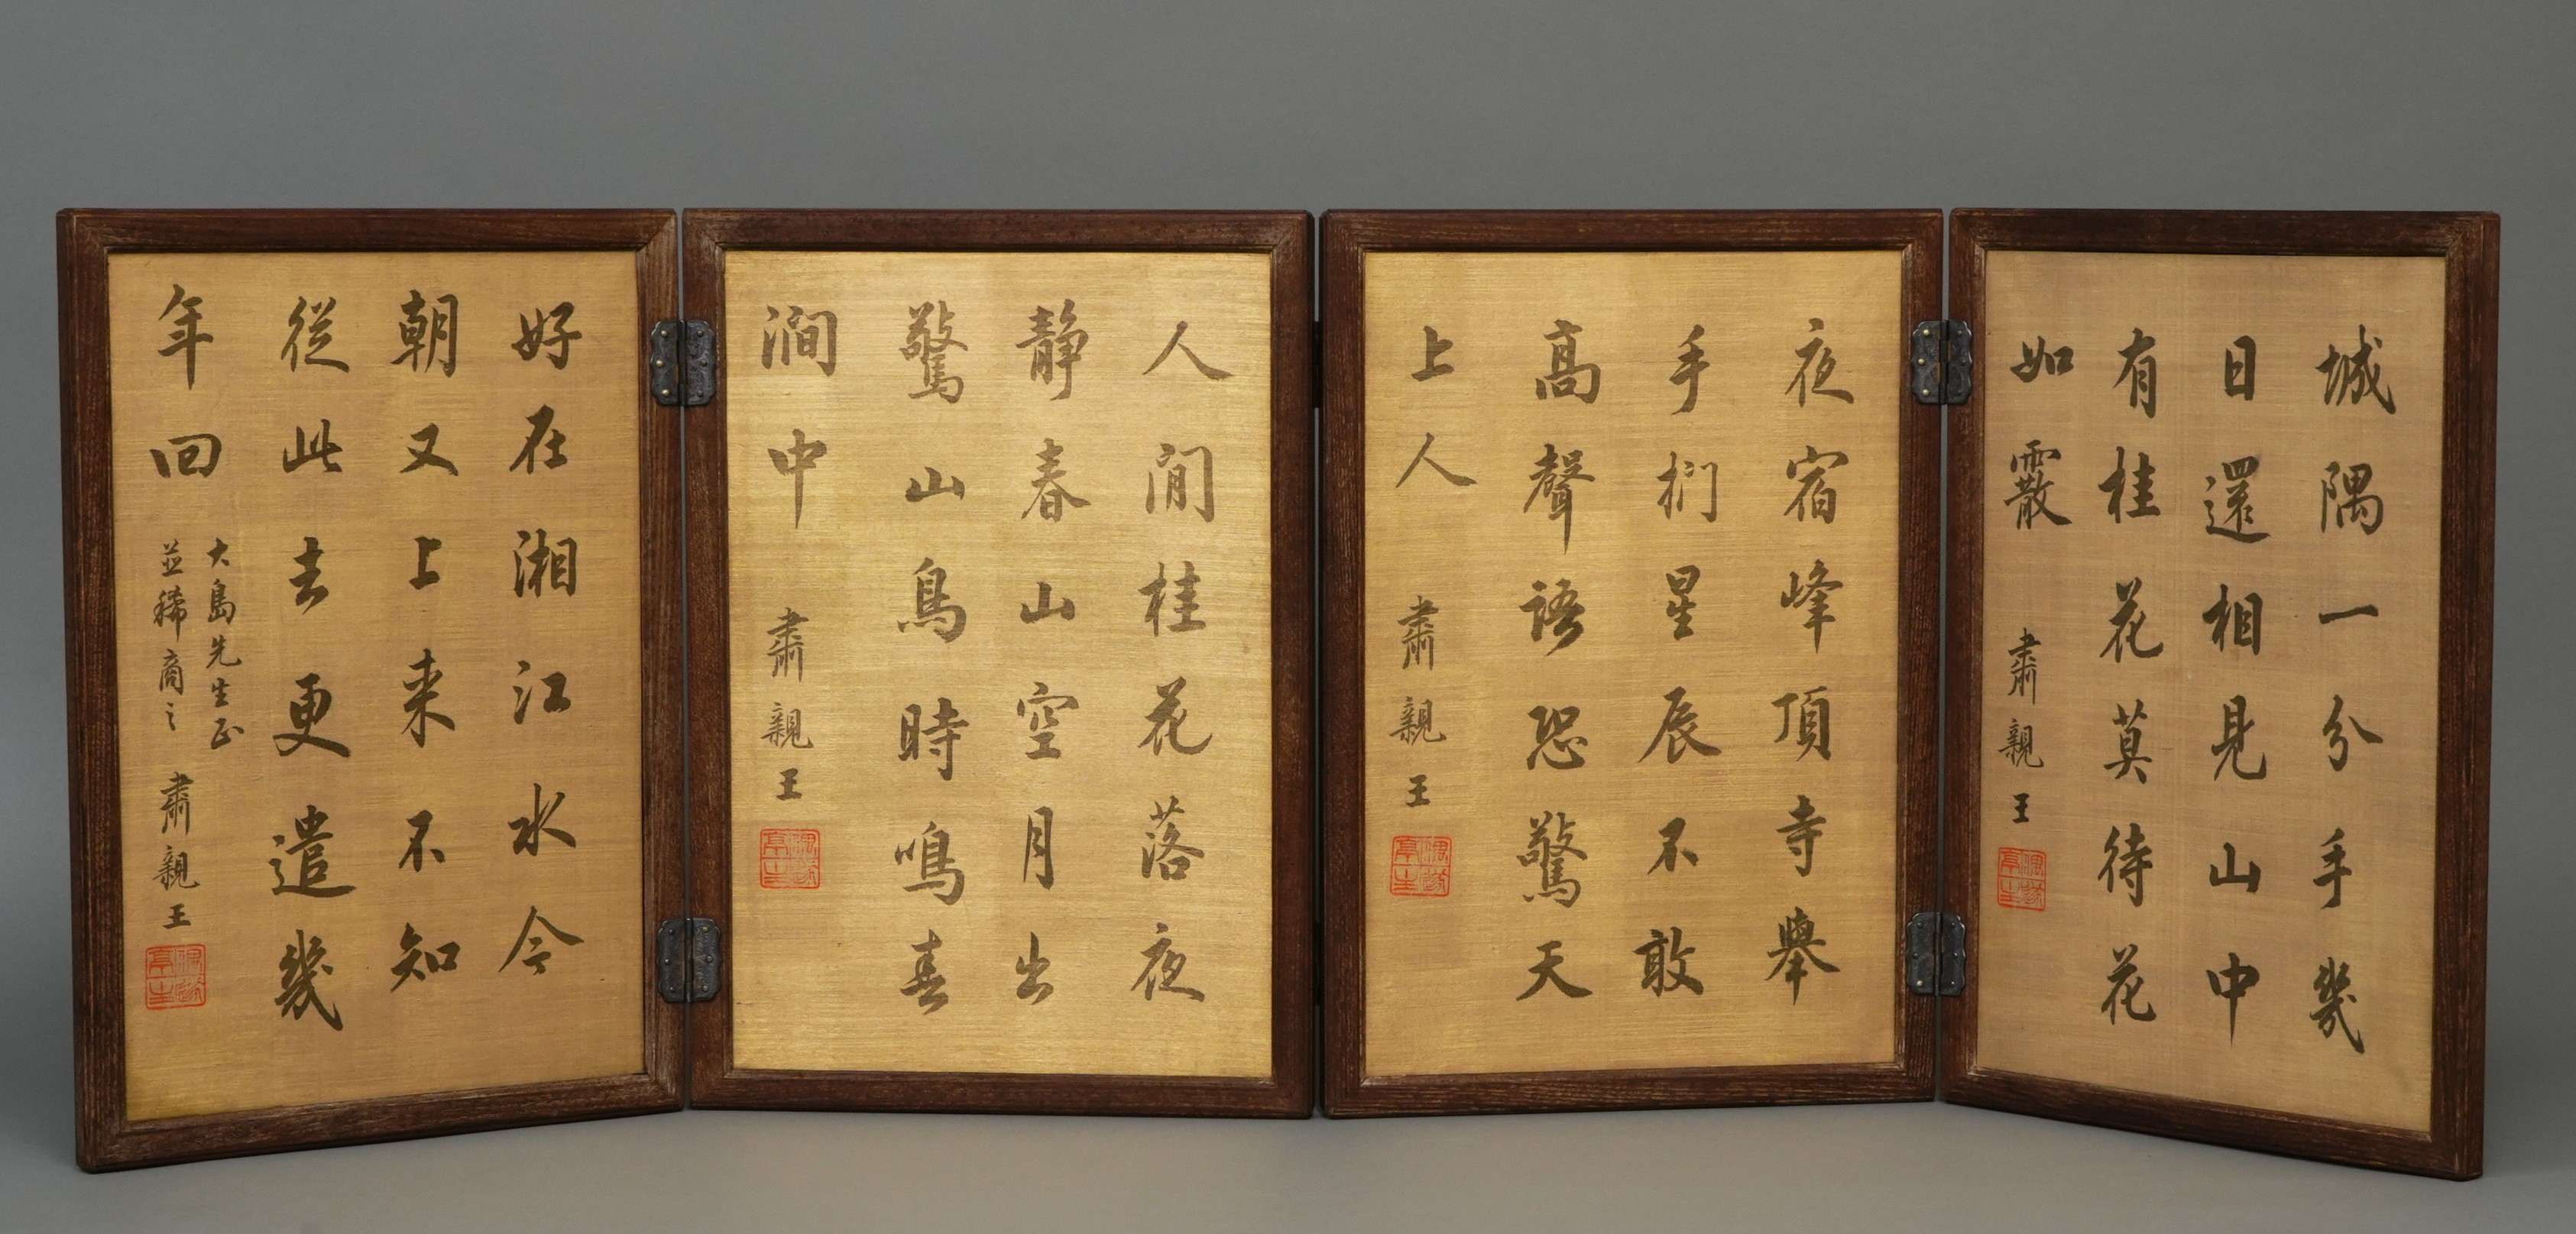 城隅一分手幾
日還相見山中
有桂花莫待花
如霰
肅親王
夜宿峰頂寺舉
手捫星辰不敢
高聲語恐驚天
上人
肅親王
人閒桂花落夜
靜春山空月出
驚山鳥時鳴春
澗中
肅親王
好在湘江水今
朝又上来不知
從此去更遣幾
年回
大島先生正
並稀商之
肅親王